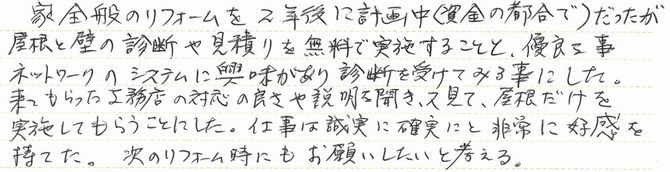 家全般のリフォームを2年後に計画中(資金の都合で)だったが
屋根と壁の診断や見積りを無料で実施することと、優良な事
ネットワークのシステムに興味があり診断を受けてみる事にした。
来てもらった工務店の対応の良さや説明を聞き、又見て、屋根だけを
実施してもらうことにした。仕事は誠実に確実にと非常に好感を
持てた。次のリフォーム時にもお願いしたいと考える。